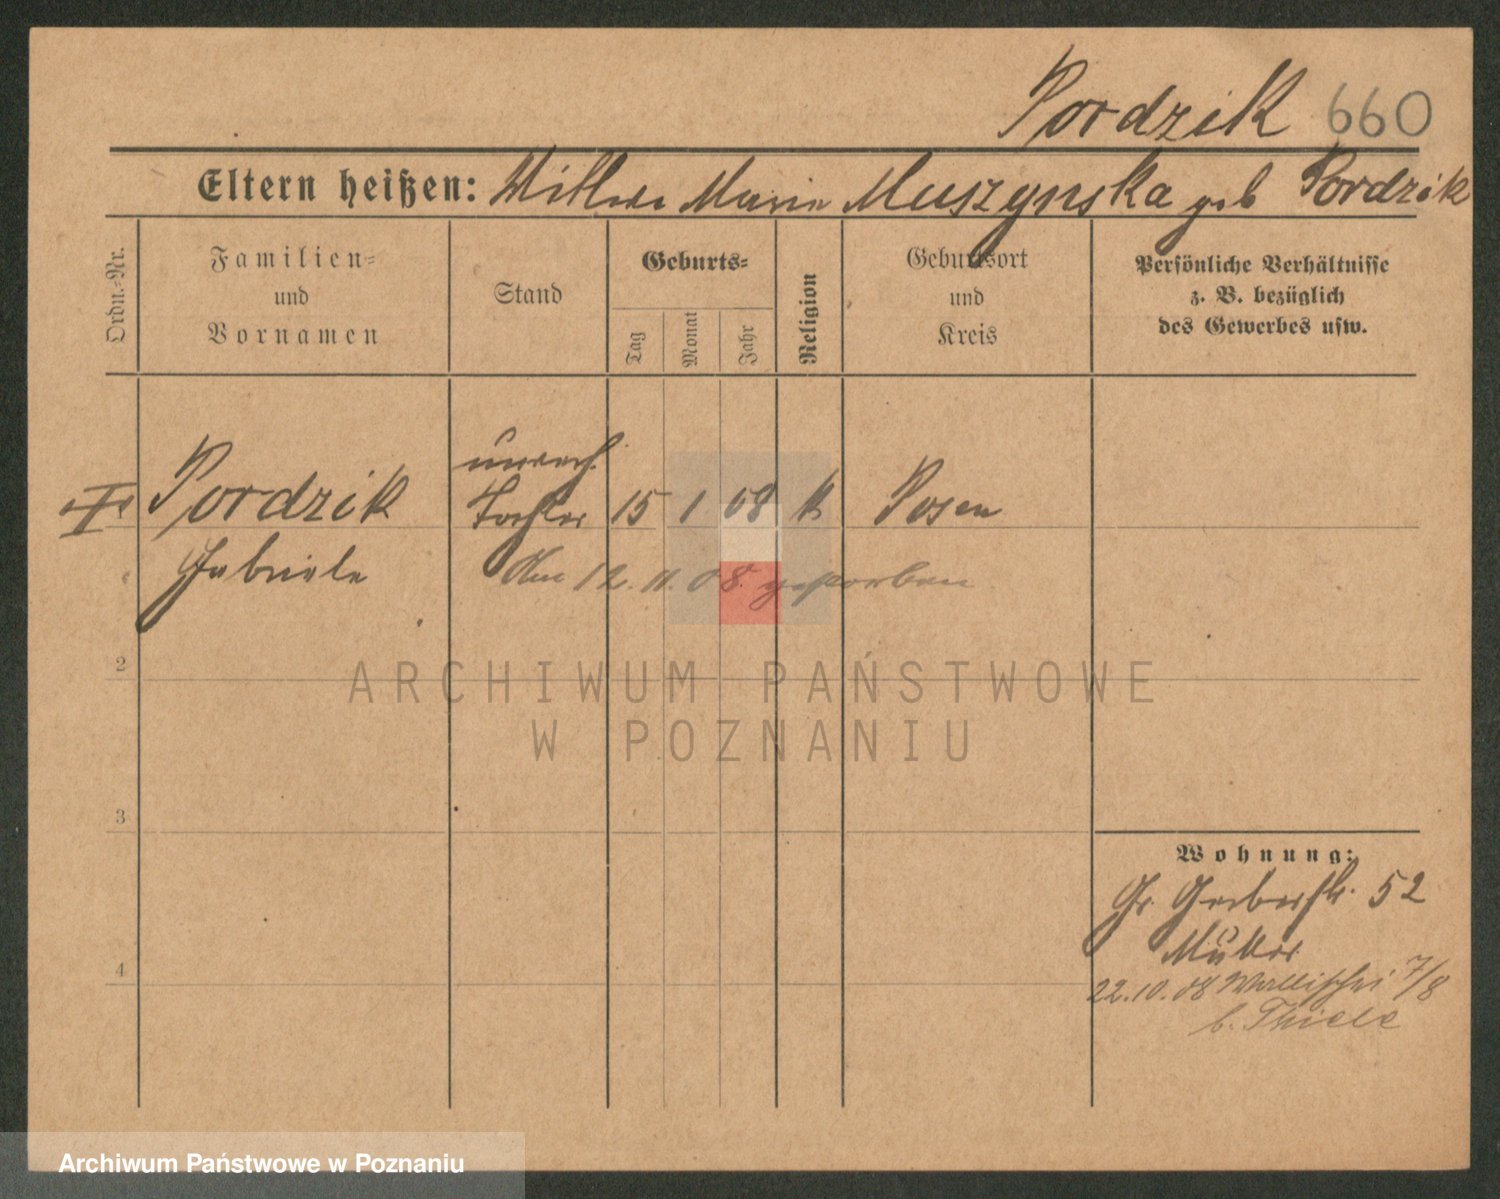 Pordzik 660
Eltern heißen: Wittwe Marie Muszynska geb Pordzik
Ordn.-Nr.
Familien- und Vornamen
Stand
Geburts-
Tag
Monat
Jahr
Religion
Geburtsort und Kreis
Persönliche Verhältnisse
z. B. bezüglich
des Gewerbes usw.
I Pordzik
Gabriele
unehel.
Tochter 15 1 08 k Posen
Am 12. 11. 08. gestorben
2
3
4
Wohnung:
Gr. Gerberstr. 52
Müller
22.10.08 Wallischei 7/8
b. Thiele
ARCHIWUM PAŃSTWOWE
W POZNANIU
Archiwum Państwowe w Poznaniu